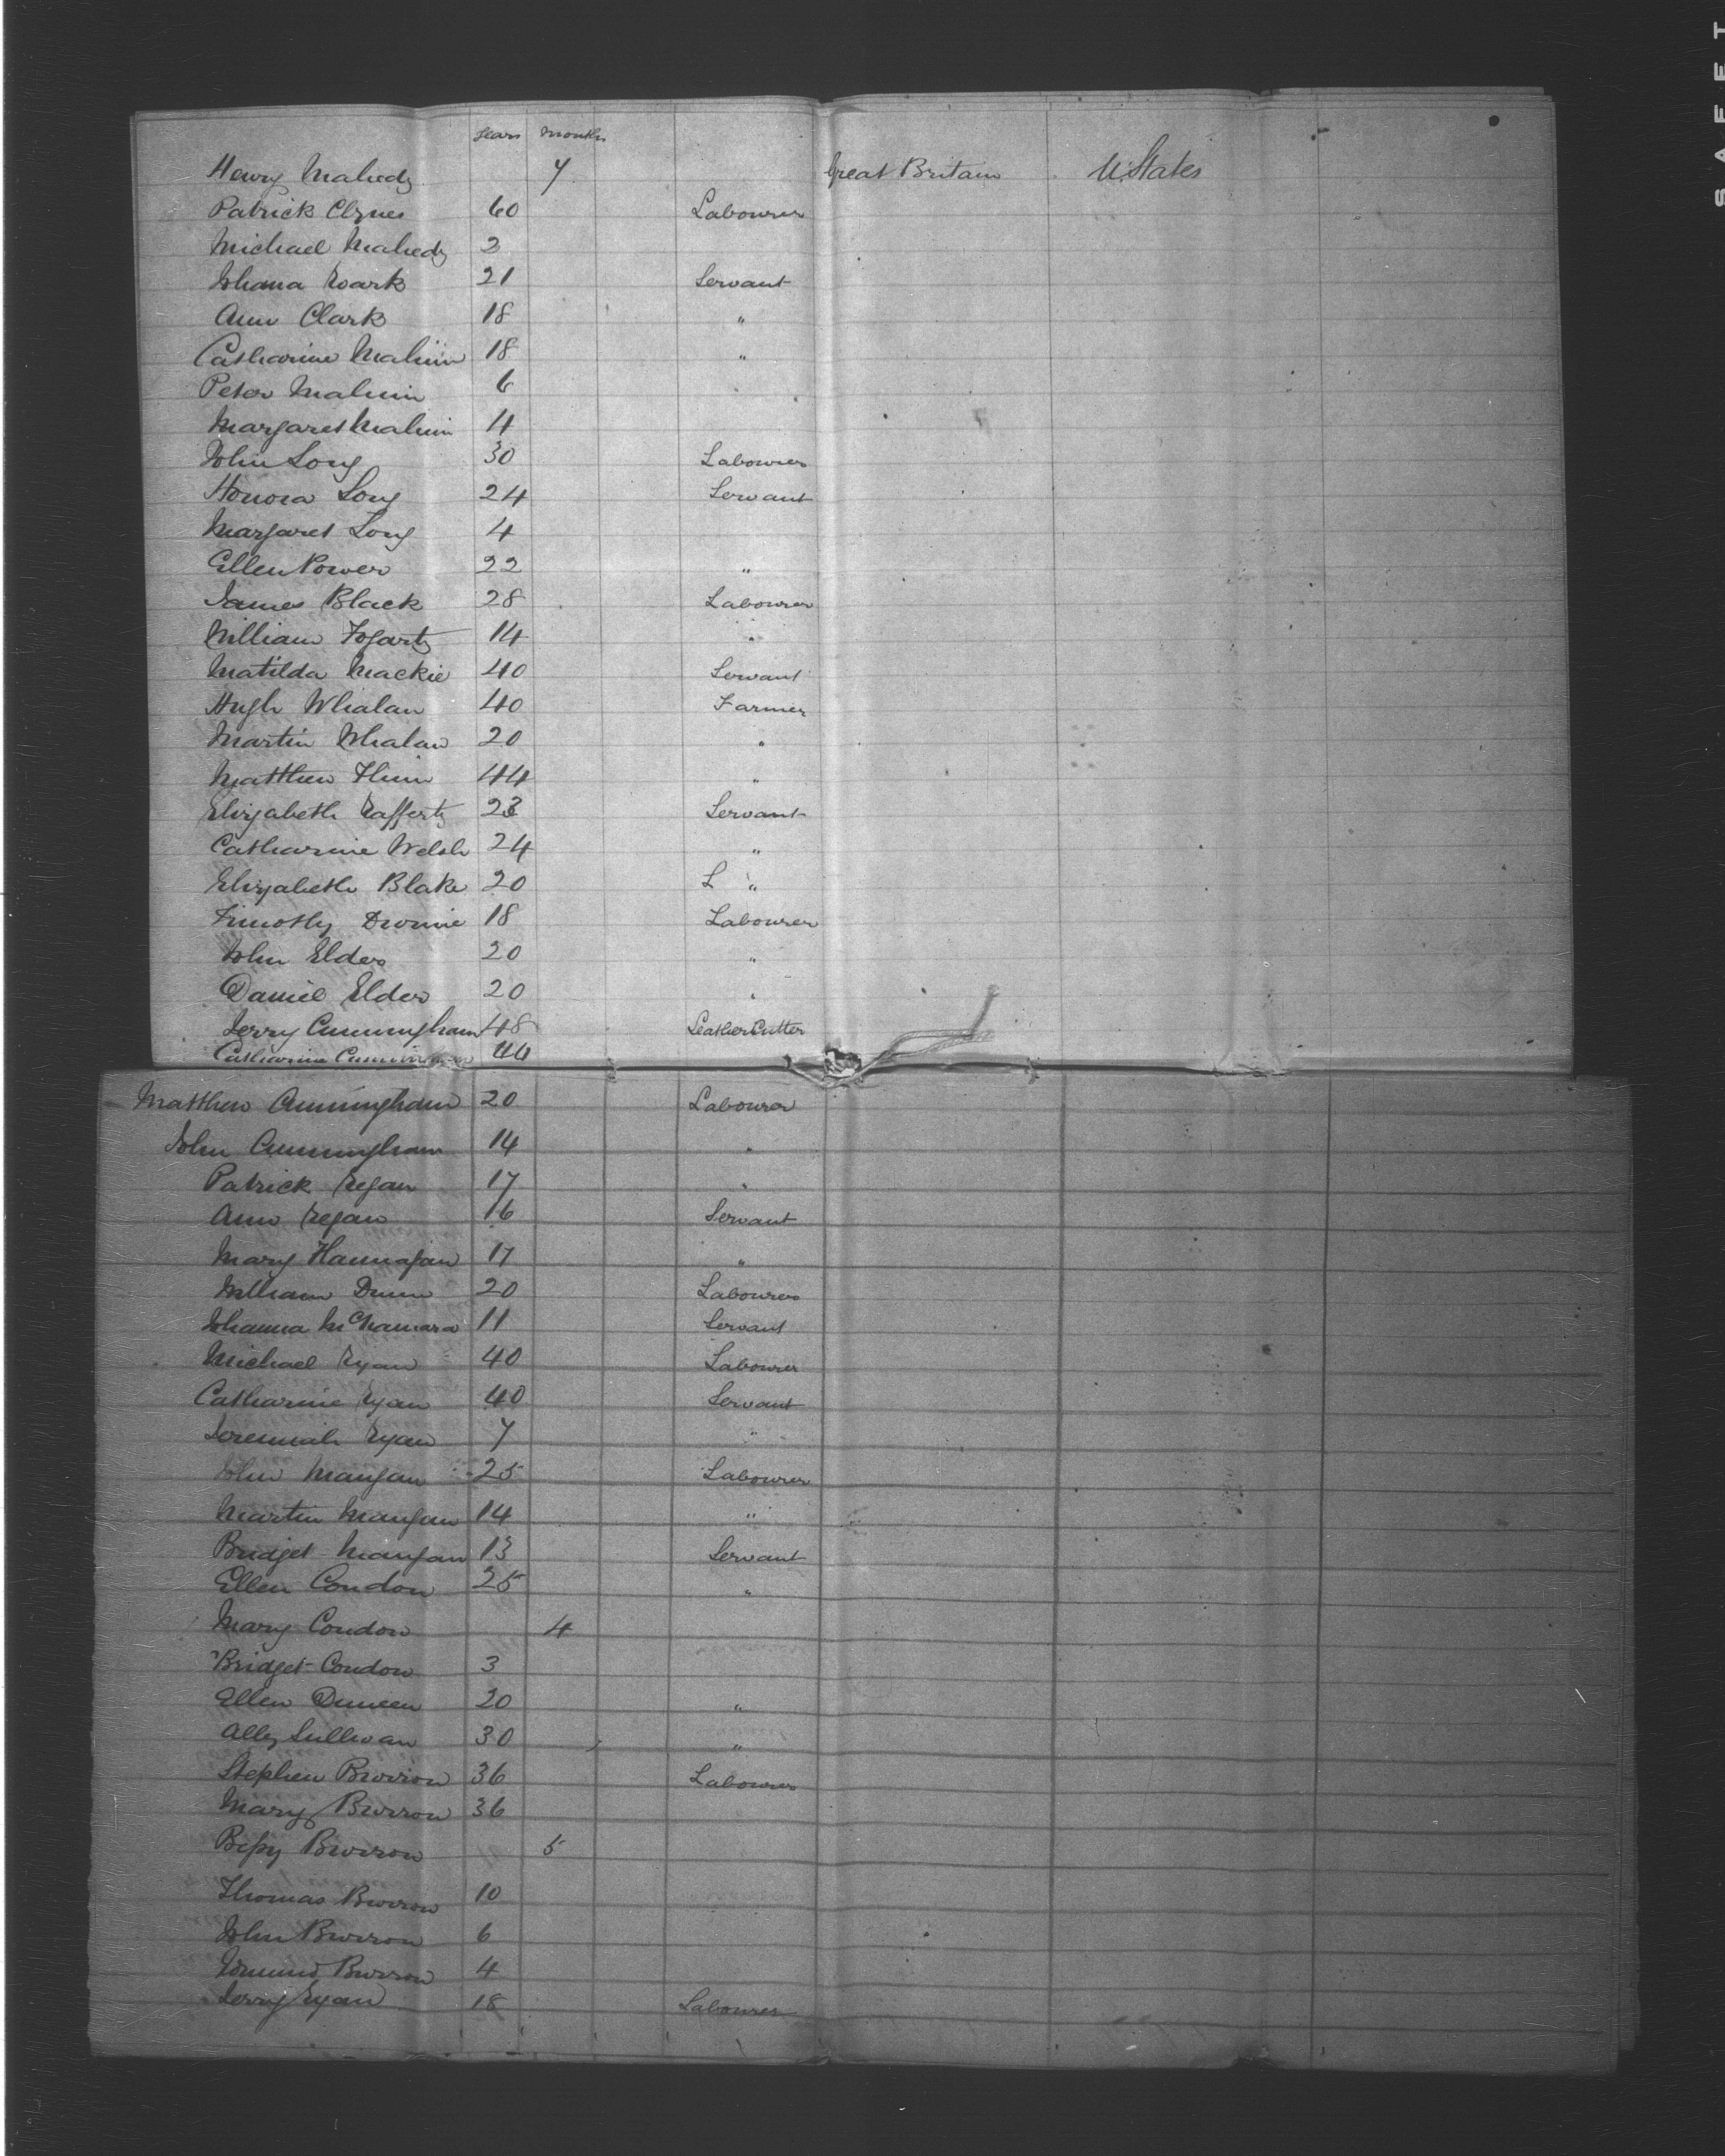 Years Months
Henry Mahedy 7 Great Britain U. States
Patrick Clynes 60 Labourer
Michael Mahedy 2
Johana Roark 21 Servant
Ann Clark 18 "
Catharine Mahim 18 "
Peter Mahim 6
Margaret Mahim 4
John Long 30 Labourer
Honora Long 24 Servant
Margaret Long 4
Ellen Power 22 "
James Black 28 Labourer
William Fogarty 14 "
Matilda Mackie 40 Servant
Hugh Whalan 40 Farmer
Martin Whalan 20 "
Matthew Flinn 44 "
Elizabeth Rafferty 23 Servant
Catharine Welsh 24 "
Elizabeth Blake 20 L "
Timothy Divinie 18 Labourer
John Elder 20 "
Daniel Elder 20 "
Jerry Cunningham 48 Leather Cutter
Catharine Cunningham 44
Matthew Cunningham 20 Labourer
John Cunningham 14 "
Patrick Regan 17 "
Ann Regan 16 Servant
Mary Hannagan 17 "
William Dunn 20 Labourer
Johanna McNamara 11 Servant
Michael Ryan 40 Labourer
Catharine Ryan 40 Servant
Jeremiah Ryan 7 "
John Mangan 25 Labourer
Martin Mangan 14 "
Bridget Mangan 13 Servant
Ellen Condon 25 "
Mary Condon 4
Bridget Condon 3
Ellen Duneen 20 "
Ally Sullivan 30 "
Stephen Burron 36 Labourer
Mary Burron 36
Bessy Burron 5
Thomas Burron 10
John Burron 6
Edmund Burron 4
Jerry Ryan 18 Labourer
SAFET